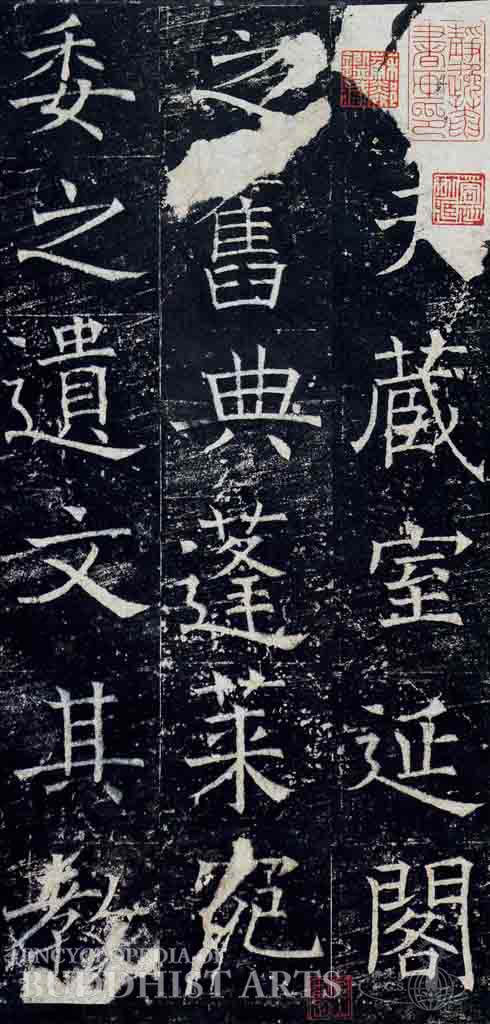 夫藏室延閣
之舊典蓬萊宛
委之遺文其教
ENCYCLOPEDIA OF
BUDDHIST ARTS